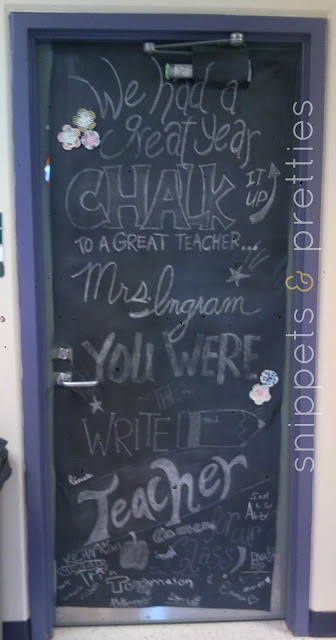 We had a
great year
CHALK IT
UP
TO A GREAT TEACHER...
Mrs. Ingram
YOU WERE
THE
WRITE No. 2
Teacher
for our
Class
Cameron
snippets & pretties